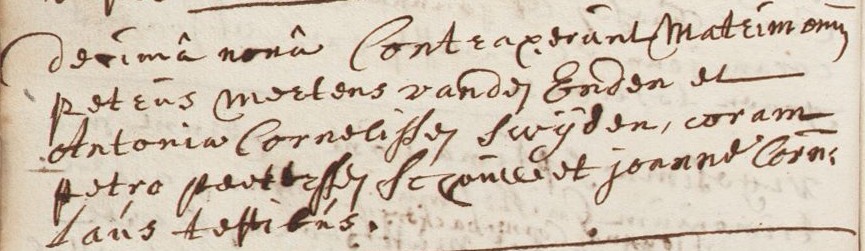 decimâ nonâ Contraxerunt Matrimoniũ
petrus Mertens vanden Enden et
Antonia Cornelissen swijden, coram
petro peetersen et joanne Corn:
laus testibus.